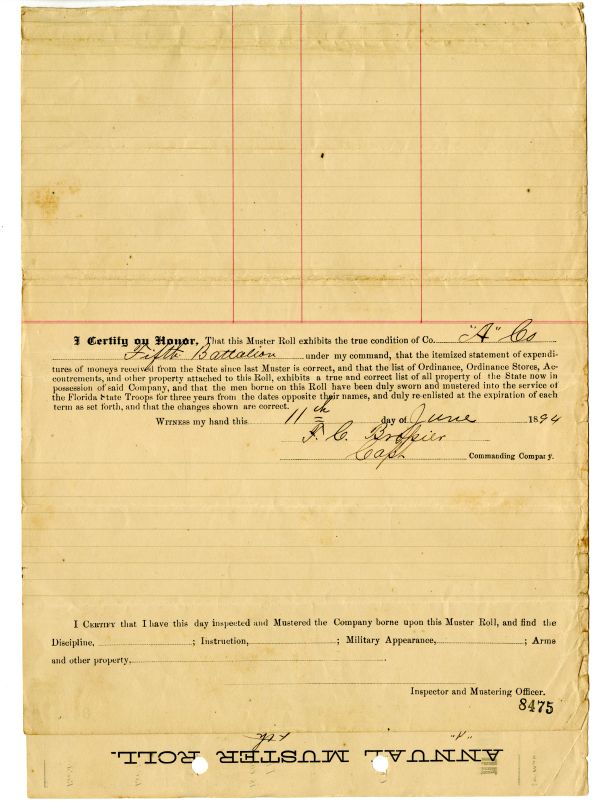 I Certify on Honor, That this Muster Roll exhibits the true condition of Co. "A" Co
Fifth Battalion under my command, that the itemized statement of expendi-
tures of moneys received from the State since last Muster is correct, and that the list of Ordinance, Ordinance Stores, Ac-
coutrements, and other property attached to this Roll, exhibits a true and correct list of all property of the State now in
possession of said Company, and that the men borne on this Roll have been duly sworn and mustered into the service of
the Florida State Troops for three years from the dates opposite their names, and duly re-enlisted at the expiration of each
term as set forth, and that the changes shown are correct.
WITNESS my hand this 11th day of June 1894
F. C. Brossier
Capt Commanding Company.
I CERTIFY that I have this day inspected and Mustered the Company borne upon this Muster Roll, and find the
Discipline, ; Instruction, ; Military Appearance, ; Arms
and other property,
Inspector and Mustering Officer.
8475
ANNUAL MUSTER ROLL.
"A"